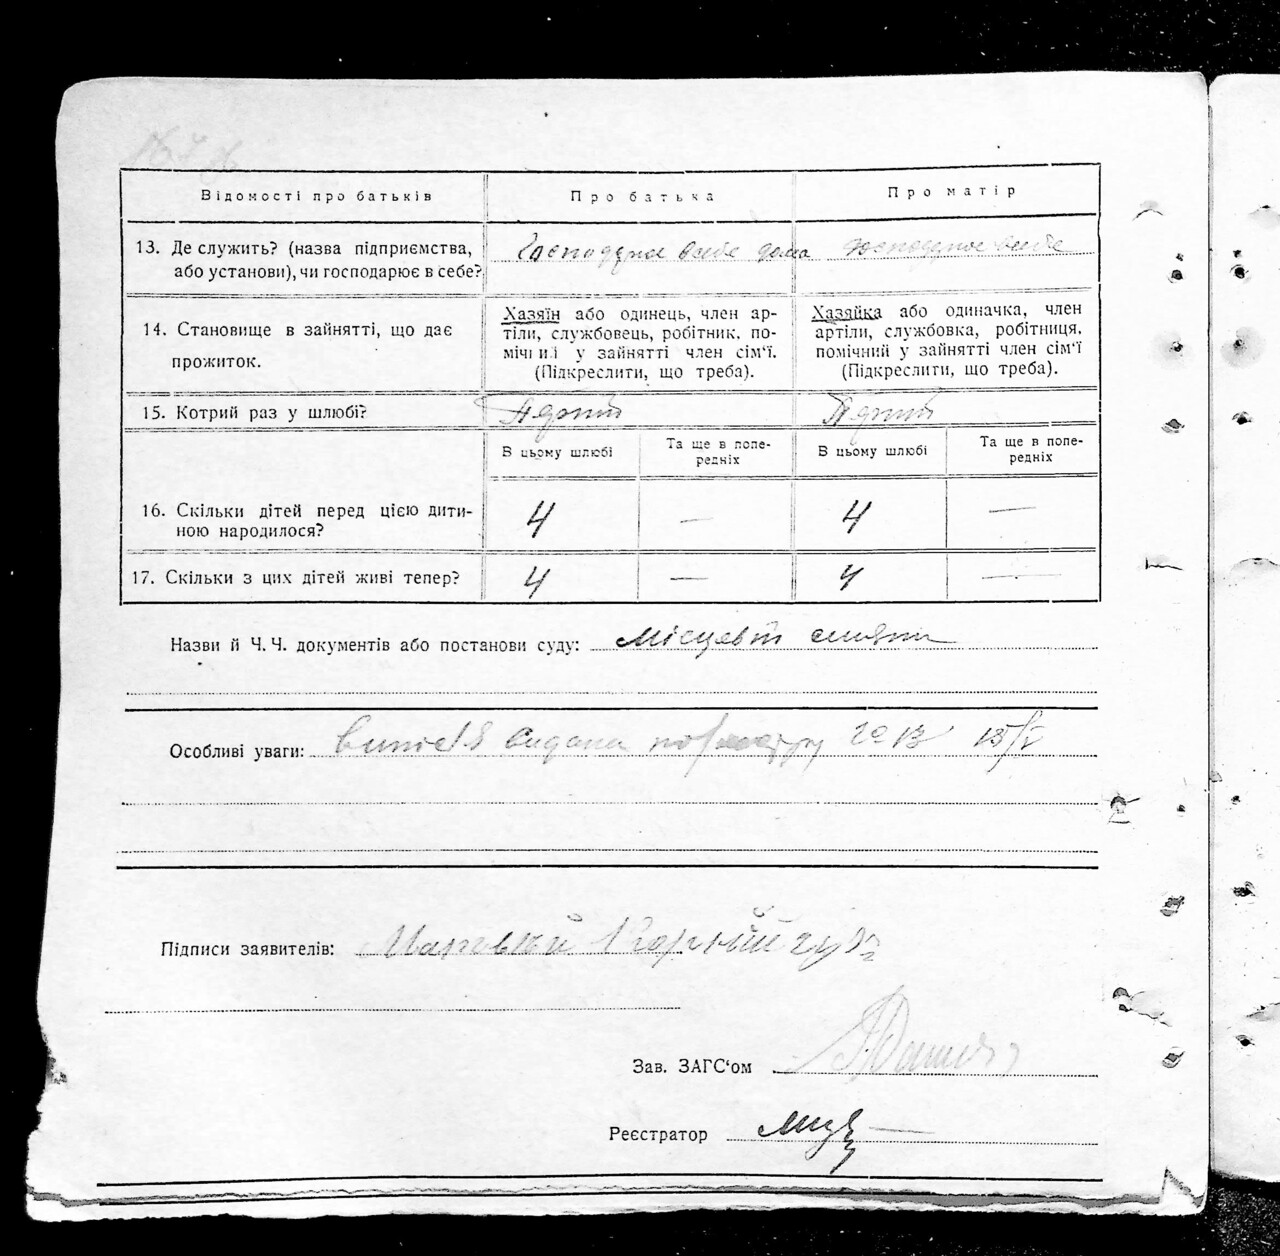 Відомості про батьків
Про батька
Про матір
13. Де служить? (назва підприємства,
або установи), чи господарює в себе?
Господарює в себе дома
господарює в себе
14. Становище в зайнятті, що дає
прожиток.
Хазяїн або одинець, член ар-
тіли, службовець, робітник, по-
мічний у зайнятті член сім'ї.
(Підкреслити, що треба).
Хазяйка або одиначка, член
артіли, службовка, робітниця,
помічний у зайнятті член сім'ї
(Підкреслити, що треба).
15. Котрий раз у шлюбі?
В цьому шлюбі
Та ще в попе-
редніх
В цьому шлюбі
Та ще в попе-
редніх
16. Скільки дітей перед цією дити-
ною народилося?
4 — 4 —
17. Скільки з цих дітей живі тепер?
4 — 4 —
Назви й Ч. Ч. документів або постанови суду: Місцевій
Особливі уваги: видана
Підписи заявителів:
Зав. ЗАГС'ом
Реєстратор